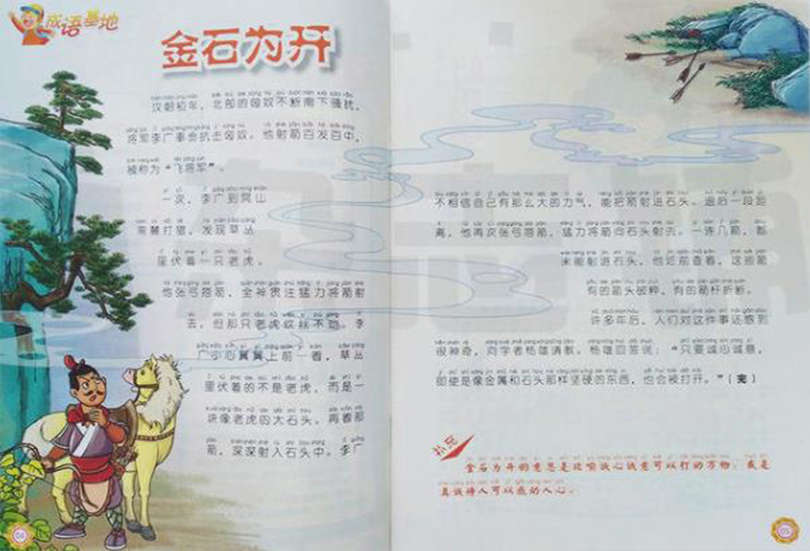 成语基地
金石为开
汉朝初年，北部的匈奴不断南下骚扰，
将军李广奉命抗击匈奴。他射箭百发百中，
被称为“飞将军”。
一次，李广到冥山
南麓打猎，发现草丛
里伏着一只老虎。
他张弓搭箭，全神贯注猛力将箭射
去，但那只老虎纹丝不动。李
广小心翼翼上前一看，草丛
里伏着的不是老虎，而是一
块像老虎的大石头。再看那
箭，深深射入石头中。李广
04
不相信自己有那么大的力气，能把箭射进石头。退后一段距
离，他再次张弓搭箭，猛力将箭向石头射去。一连几箭，都
未能射进石头，他近前查看，这些箭
有的箭头破碎，有的箭杆折断。
许多年后，人们对这件事还感到
很神奇，向学者杨雄请教。杨雄回答说：“只要诚心诚意，
即使是像金属和石头那样坚硬的东西，也会被打开。”（完）
金石为开的意思是比喻诚心诚意可以打动万物；或是
真诚待人可以感动人心。
05